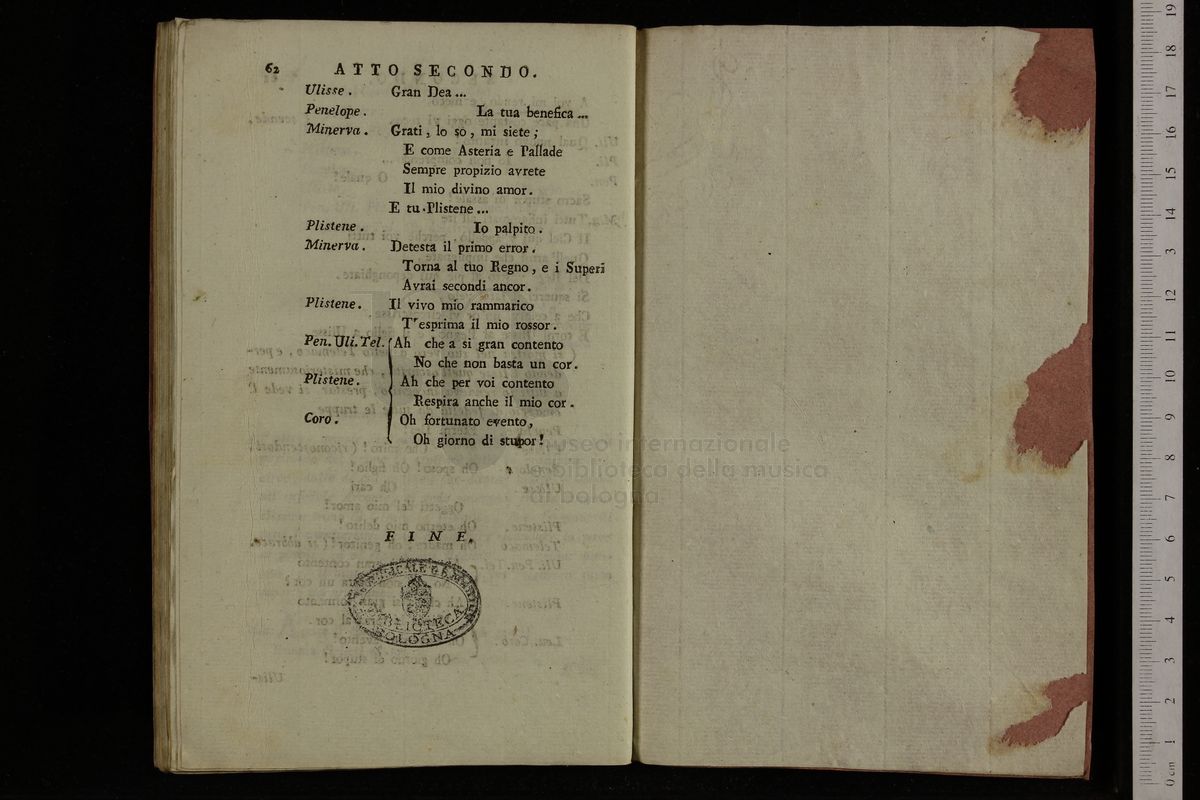 62 ATTO SECONDO.
Ulisse. Gran Dea...
Penelope. La tua benefica...
Minerva. Grati, lo so, mi siete;
E come Asteria e Pallade
Sempre propizio avrete
Il mio divino amor.
E tu Plistene...
Plistene. Io palpito.
Minerva. Detesta il primo error.
Torna al tuo Regno, e i Superi
Avrai secondi ancor.
Plistene. Il vivo mio rammarico
T'esprima il mio rossor.
Pen. Uli. Tel. Ah che a si gran contento
No che non basta un cor.
Plistene. Ah che per voi contento
Respira anche il mio cor.
Coro. Oh fortunato evento,
Oh giorno di stupor!
museo internazionale
e biblioteca della musica
di bologna
FINE.
BIBLIOTECA
BOLOGNA
19
18
17
16
15
14
13
12
11
10
9
8
7
6
5
4
3
2
1
0 cm